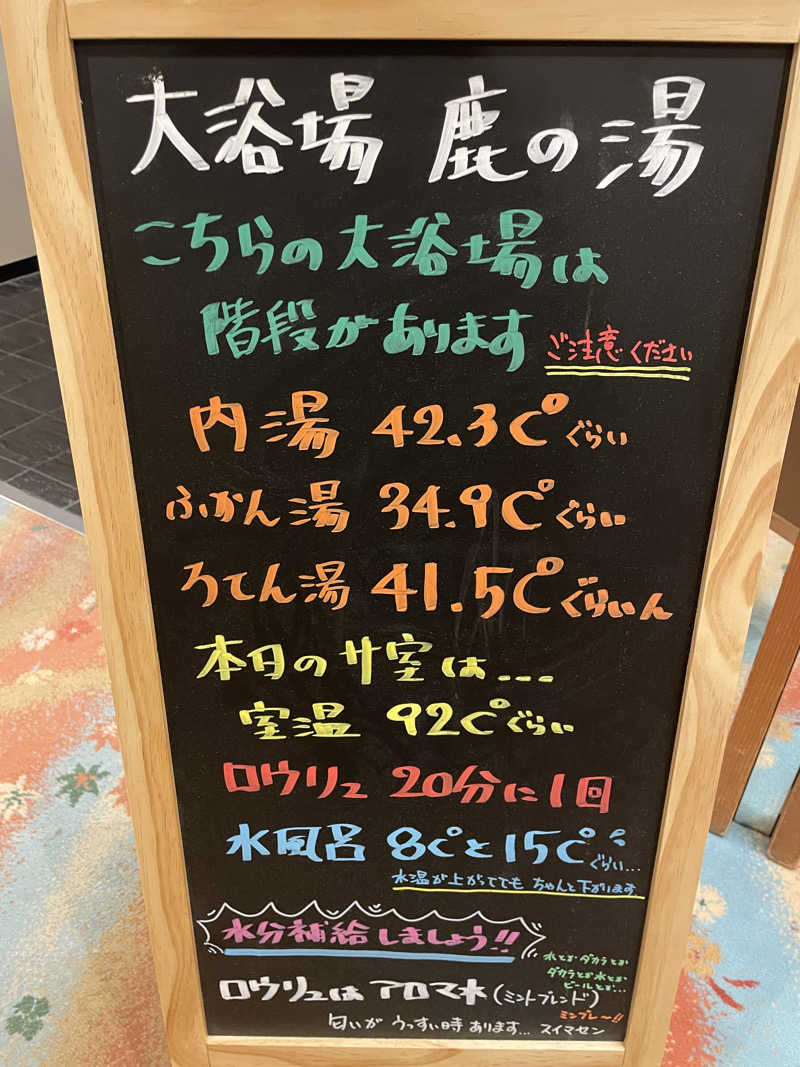 大浴場 鹿の湯
こちらの大浴場は
階段があります ご注意ください
内湯 42.3C°ぐらい
ふかん湯 34.9C°ぐらい
ろてん湯 41.5C°ぐらいん
本日のサ室は...
室温 92C°ぐらい
ロウリュ 20分に1回
水風呂 8C°と15C°ぐらい...
水温が上がってても ちゃんと下がります
水分補給しましょう!!
水とか ダカラとか
ダカラとか水とか
ビールとか...
ロウリュは アロマ水(ミントブレンド)
ミンブレ〜!!
匂いが うっすい時あります... スイマセン